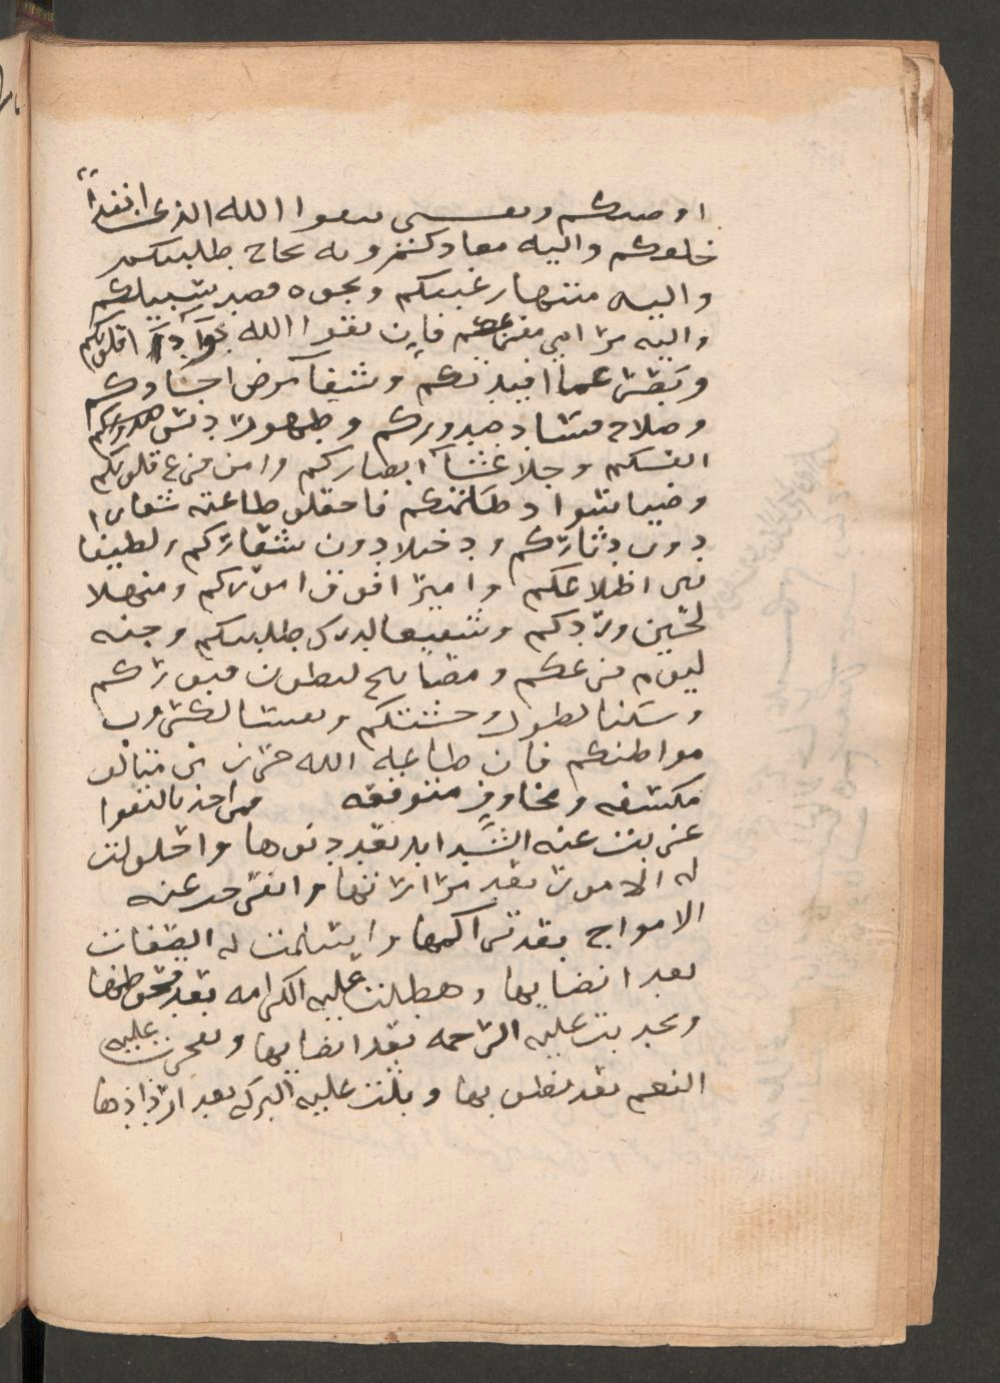 اوصيكم ونفسي بتقوا الله الذي ابتدأ
خلقكم واليه معادكم وبه نجاح طلبتكم
واليه منتها رغبتكم ونحوه قصد سبيلكم
واليه مرامي مفزعكم فإن تقوا الله دوآ دآ قلوبكم
وبصر عما افيدتكم وشفآ مرض اجسادكم
وصلاح فساد صدوركم وطهور دنس
انفسكم وجلا غشآ ابصاركم وامن فزع قلوبكم
وضيا سواد ظلمتكم فاجعلو طاعته شعارا
دون دثاركم ودخيلا دون شعاركم ولطيفا
بين اظلاعكم واميرا فوق اموركم ومنهلا
لحين وردكم وشفيعا لدرك طلبتكم وجنه
ليوم فزعكم ومصابيح لبطون قبوركم
وسكنا لطول وحشتكم ونفسا لكرب
مواطنكم فان طاعة الله حرز من متالف
مكتنفه ومخاوف متوقعه فمن اخذ بالتقوا
عزبت عنه الشدايد بعد دنوها واحلولت
له الامور بعد مرارتها وانفرجت عنه
الامواج بعد تراكمها واسلمت له الصعاب
بعد انصابها وهطلت عليه الكرامه بعد قحوطها
وتحدبت عليه الرحمه بعد وتفجرت عليه
النعم بعد نظوبها وبلت عليه البركه بعد ارذاذها